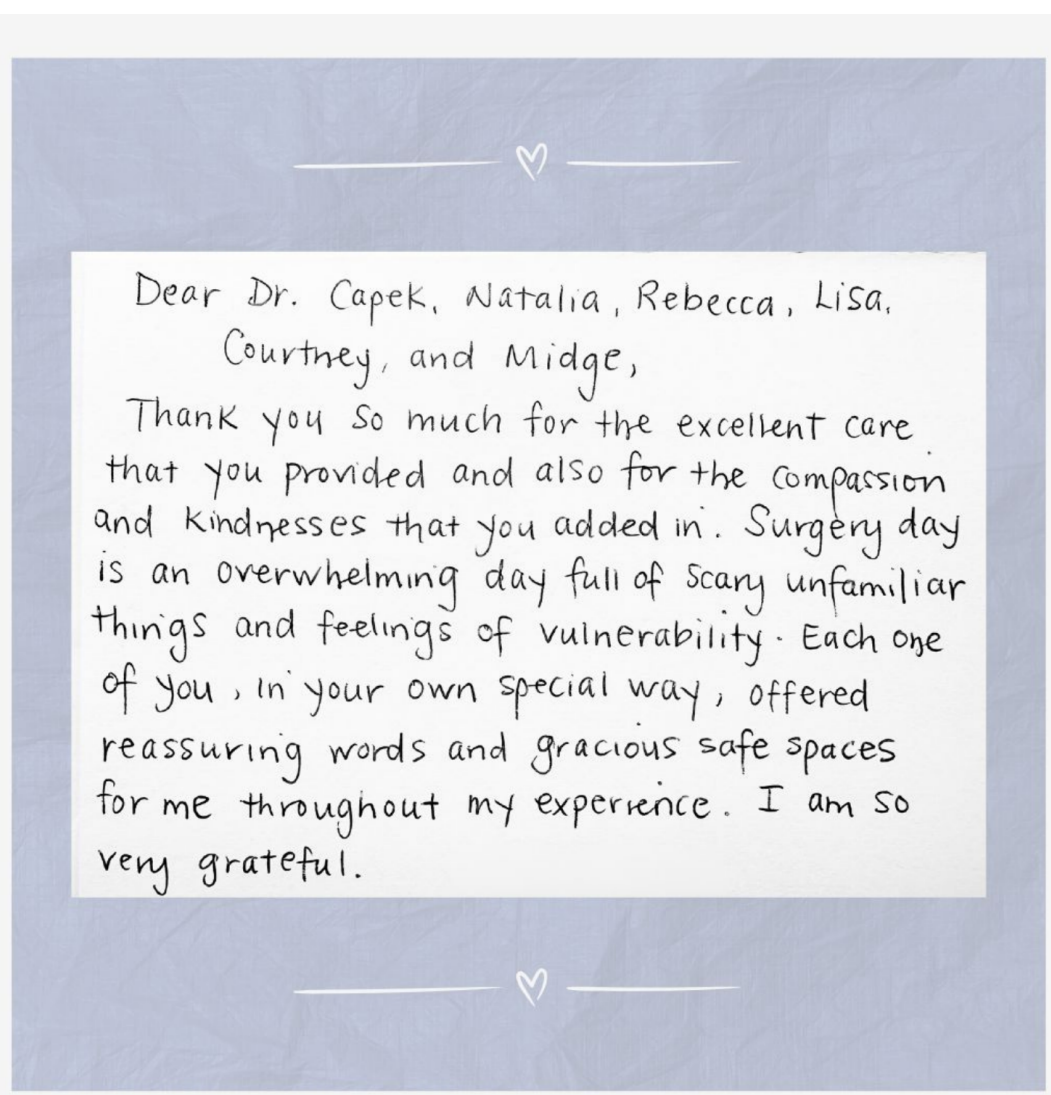 Dear Dr. Capek, Natalia, Rebecca, Lisa,
Courtney, and Midge,
Thank you so much for the excellent care
that you provided and also for the compassion
and kindnesses that you added in. Surgery day
is an overwhelming day full of scary unfamiliar
things and feelings of vulnerability. Each one
of you, in your own special way, offered
reassuring words and gracious safe spaces
for me throughout my experience. I am so
very grateful.